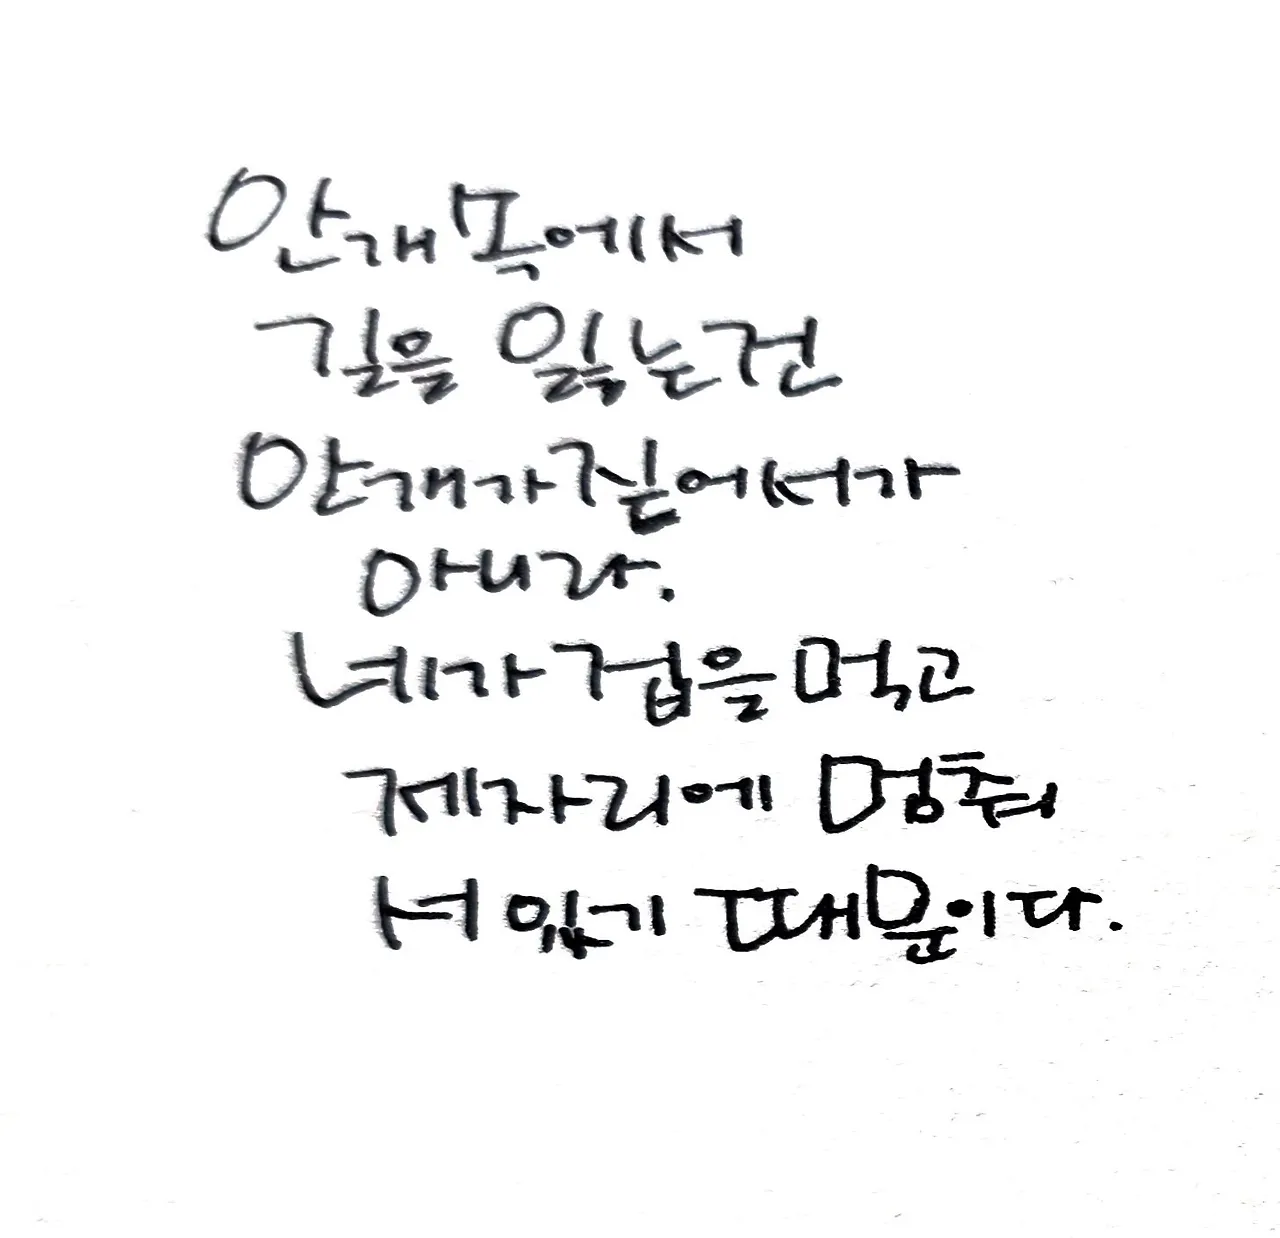 안개 속에서
길을 잃는건
안개가 짙어서가
아니라.
네가 겁을 먹고
제자리에 멈춰
서 있기 때문이다.